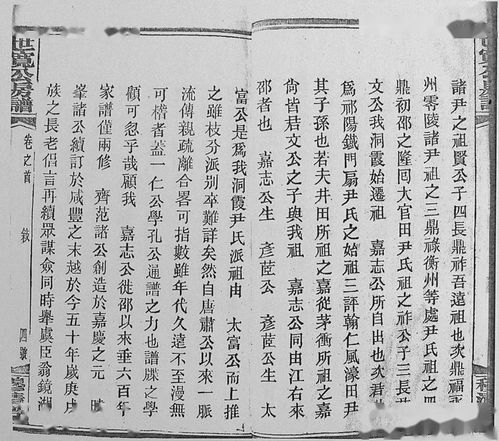 諸尹之祖賢公子四長鼎祚吾遠祖也次鼎福永
州零陵諸尹祖之三鼎祿衡州等處尹氏祖之四
鼎初邵之隆囘大官田尹氏祖之祚公子三長尹
文公我洞霞始遷祖 嘉志公所自出也次君
爲祁陽鐵門扇尹氏之始祖三評翰仁風濠田尹
其子孫也若夫井田所祖之嘉從茅衝所祖之
尙皆君文公之子與我祖 嘉志公同由江右來
邵者也 嘉志公生 彥莚公 彥莚公生 太
富公是爲我洞霞尹氏派祖由 太富公而上推
之雖枝分派別卒難詳矣然自唐肅公以來一脈
流傳親疏離合畧可指數雖年代久遠不至漫無
可稽者蓋一仁公學孔公通譜之力也譜牒之學
顧可忽乎哉顧我 嘉志公徙邵以來垂六百年
家譜僅兩修 齊范諸公創造於嘉慶之元
峯諸公續訂於咸豐之末越於今五十年歲庚戌
族之長老倡言再續眾謀僉同時舉虞臣翁鏡湖
世寬公房譜
卷之首
敘
四